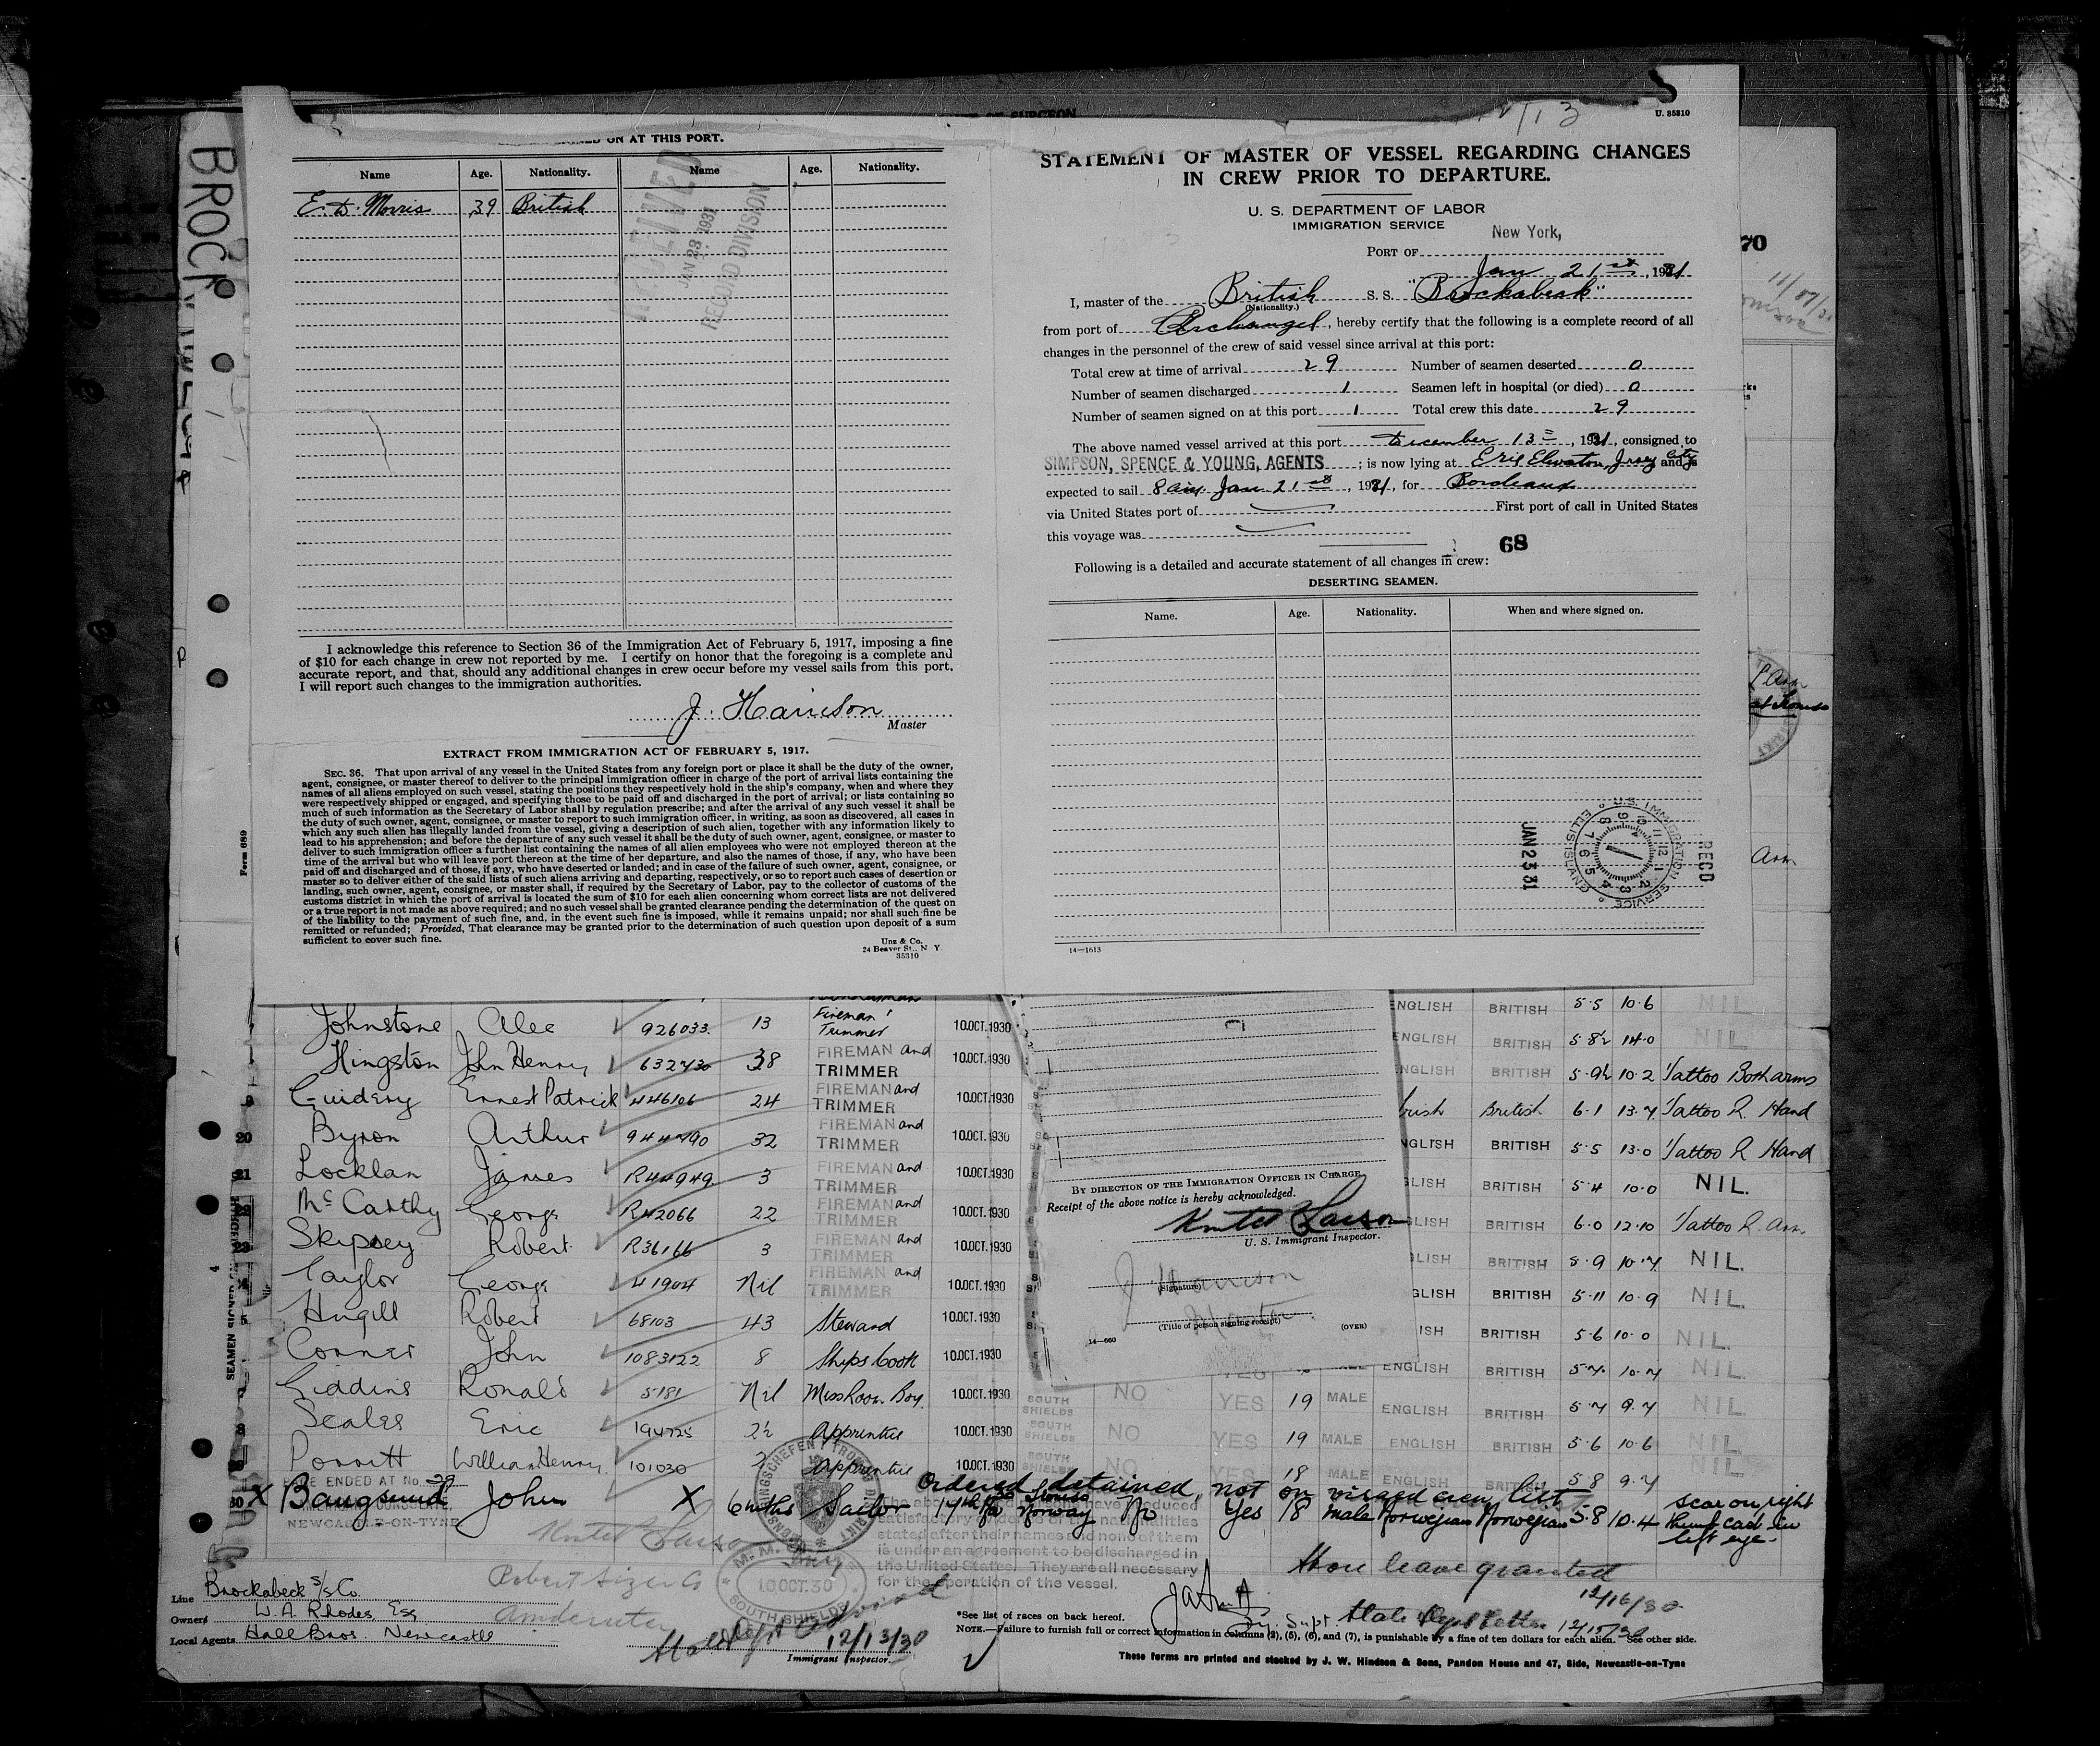 U. 35310
V/13
SIGNED ON AT THIS PORT.
Name Age. Nationality. Name Age. Nationality.
E. D. Morris 39 British
RECEIVED
JAN 23 1931
RECORD DIVISION
I acknowledge this reference to Section 36 of the Immigration Act of February 5, 1917, imposing a fine
of $10 for each change in crew not reported by me. I certify on honor that the foregoing is a complete and
accurate report, and that, should any additional changes in crew occur before my vessel sails from this port,
I will report such changes to the immigration authorities.
J. Harrison
Master
EXTRACT FROM IMMIGRATION ACT OF FEBRUARY 5, 1917.
SEC. 36. That upon arrival of any vessel in the United States from any foreign port or place it shall be the duty of the owner,
agent, consignee, or master thereof to deliver to the principal immigration officer in charge of the port of arrival lists containing the
names of all aliens employed on such vessel, stating the positions they respectively hold in the ship's company, when and where they
were respectively shipped or engaged, and specifying those to be paid off and discharged in the port of arrival; or lists containing so
much of such information as the Secretary of Labor shall by regulation prescribe; and after the arrival of any such vessel it shall be
the duty of such owner, agent, consignee, or master to report to such immigration officer, in writing, as soon as discovered, all cases in
which any such alien has illegally landed from the vessel, giving a description of such alien, together with any information likely to
lead to his apprehension; and before the departure of any such vessel it shall be the duty of such owner, agent, consignee, or master to
deliver to such immigration officer a further list containing the names of all alien employees who were not employed thereon at the
time of the arrival but who will leave port thereon at the time of her departure, and also the names of those, if any, who have been
paid off and discharged and of those, if any, who have deserted or landed; and in case of the failure of such owner, agent, consignee, or
master so to deliver either of the said lists of such aliens arriving and departing, respectively, or so to report such cases of desertion or
landing, such owner, agent, consignee, or master, shall, if required by the Secretary of Labor, pay to the collector of customs of the
customs district in which the port of arrival is located the sum of $10 for each alien concerning whom correct lists are not delivered
or a true report is not made as above required; and no such vessel shall be granted clearance pending the determination of the quest on
of the liability to the payment of such fine, and, in the event such fine is imposed, while it remains unpaid; nor shall such fine be
remitted or refunded; Provided, That clearance may be granted prior to the determination of such question upon deposit of a sum
sufficient to cover such fine.
Unz & Co.
24 Beaver St., N Y
35310
Form 689
STATEMENT OF MASTER OF VESSEL REGARDING CHANGES
IN CREW PRIOR TO DEPARTURE.
U. S. DEPARTMENT OF LABOR
IMMIGRATION SERVICE
PORT OF New York,
Jan 21st, 1931
I, master of the British S. S. "Brockabeck"
(Nationality.)
from port of Archangel, hereby certify that the following is a complete record of all
changes in the personnel of the crew of said vessel since arrival at this port:
Total crew at time of arrival 29 Number of seamen deserted 0
Number of seamen discharged 1 Seamen left in hospital (or died) 0
Number of seamen signed on at this port 1 Total crew this date 29
The above named vessel arrived at this port December 13th, 1931, consigned to
SIMPSON, SPENCE & YOUNG, AGENTS; is now lying at Erie Elevator, Jrsey City and is
expected to sail 8 am Jan 21st, 1931, for Bordeaux
via United States port of First port of call in United States
this voyage was
68
Following is a detailed and accurate statement of all changes in crew:
DESERTING SEAMEN.
Name. Age. Nationality. When and where signed on.
JAN 23 31
U.S. IMMIGRATION SERVICE ELLIS ISLAND
REC'D
14—1613
70
Johnstone Alec 926033 13 Fireman Trimmer 10.OCT.1930 ENGLISH BRITISH 5·5 10·6 NIL
Hingston John Henry 632730 38 FIREMAN and TRIMMER 10.OCT.1930 ENGLISH BRITISH 5·8½ 14·0 NIL
Guidery Ernest Patrick 446106 24 FIREMAN and TRIMMER 10.OCT.1930 ENGLISH BRITISH 5·9½ 10·2 Tattoo Both arms
20 Byron Arthur 944790 32 FIREMAN and TRIMMER 10.OCT.1930 Irish British 6·1 13·7 Tattoo R. Hand
21 Locklan James R44949 3 FIREMAN and TRIMMER 10.OCT.1930 ENGLISH BRITISH 5·5 13·0 Tattoo R Hand
22 McCarthy George R42066 22 FIREMAN and TRIMMER 10.OCT.1930 ENGLISH BRITISH 5·4 10·0 NIL.
23 Skipsey Robert R36166 3 FIREMAN and TRIMMER 10.OCT.1930 ENGLISH BRITISH 6·0 12·10 Tattoo R. Arm
Taylor George 41904 Nil FIREMAN and TRIMMER 10.OCT.1930 BRITISH 5·9 10·7 NIL.
Hugill Robert 68103 43 Steward 10.OCT.1930 BRITISH 5·11 10·9 NIL.
Conner John 1083122 8 Ships Cook 10.OCT.1930 BRITISH 5·6 10·0 NIL.
Giddins Ronald 5181 Nil Mess Room Boy 10.OCT.1930 ENGLISH BRITISH 5·7 10·7 NIL
Scales Eric 194725 2½ Apprentice 10.OCT.1930 SOUTH SHIELDS NO YES 19 MALE ENGLISH BRITISH 5·7 9·7 NIL
Porritt William Henry 101030 2 Apprentice 10.OCT.1930 SOUTH SHIELDS NO YES 19 MALE ENGLISH BRITISH 5·6 10·6 NIL
SOUTH NO YES 18 MALE ENGLISH 5·8 9·7 NIL
PAGE ENDED AT No. 29
Ordered detained, not on visaed crew list
30 X Baugsund John X 6 mths Sailor Norway No Yes 18 male Norwegian Norwegian 5·8 10·4 scar on right thumb cad in left eye
NEWCASTLE-ON-TYNE
BY DIRECTION OF THE IMMIGRATION OFFICER IN CHARGE
Receipt of the above notice is hereby acknowledged.
Knute Larson
U. S. Immigrant Inspector.
J Harrison
(Signature)
Master
(Title of person signing receipt)
14—660 (OVER)
satisfactory
stated after their names and none of them
is under an agreement to be discharged in
the United States. They are all necessary
for the operation of the vessel.
M. M. O.
10 OCT. 30
SOUTH SHIELDS
Shore leave granted
12/16/30
Line Brockabeck S/S Co.
Owners W. A. Rhodes Esq
Local Agents Hall Bros. Newcastle
Robert Sizer Co
12/13/30
Immigrant Inspector.
*See list of races on back hereof.
NOTE.—Failure to furnish full or correct information in columns (2), (5), (6), and (7), is punishable by a fine of ten dollars for each alien. See other side.
These forms are printed and stocked by J. W. Hindson & Sons, Pandon House and 47, Side, Newcastle-on-Tyne